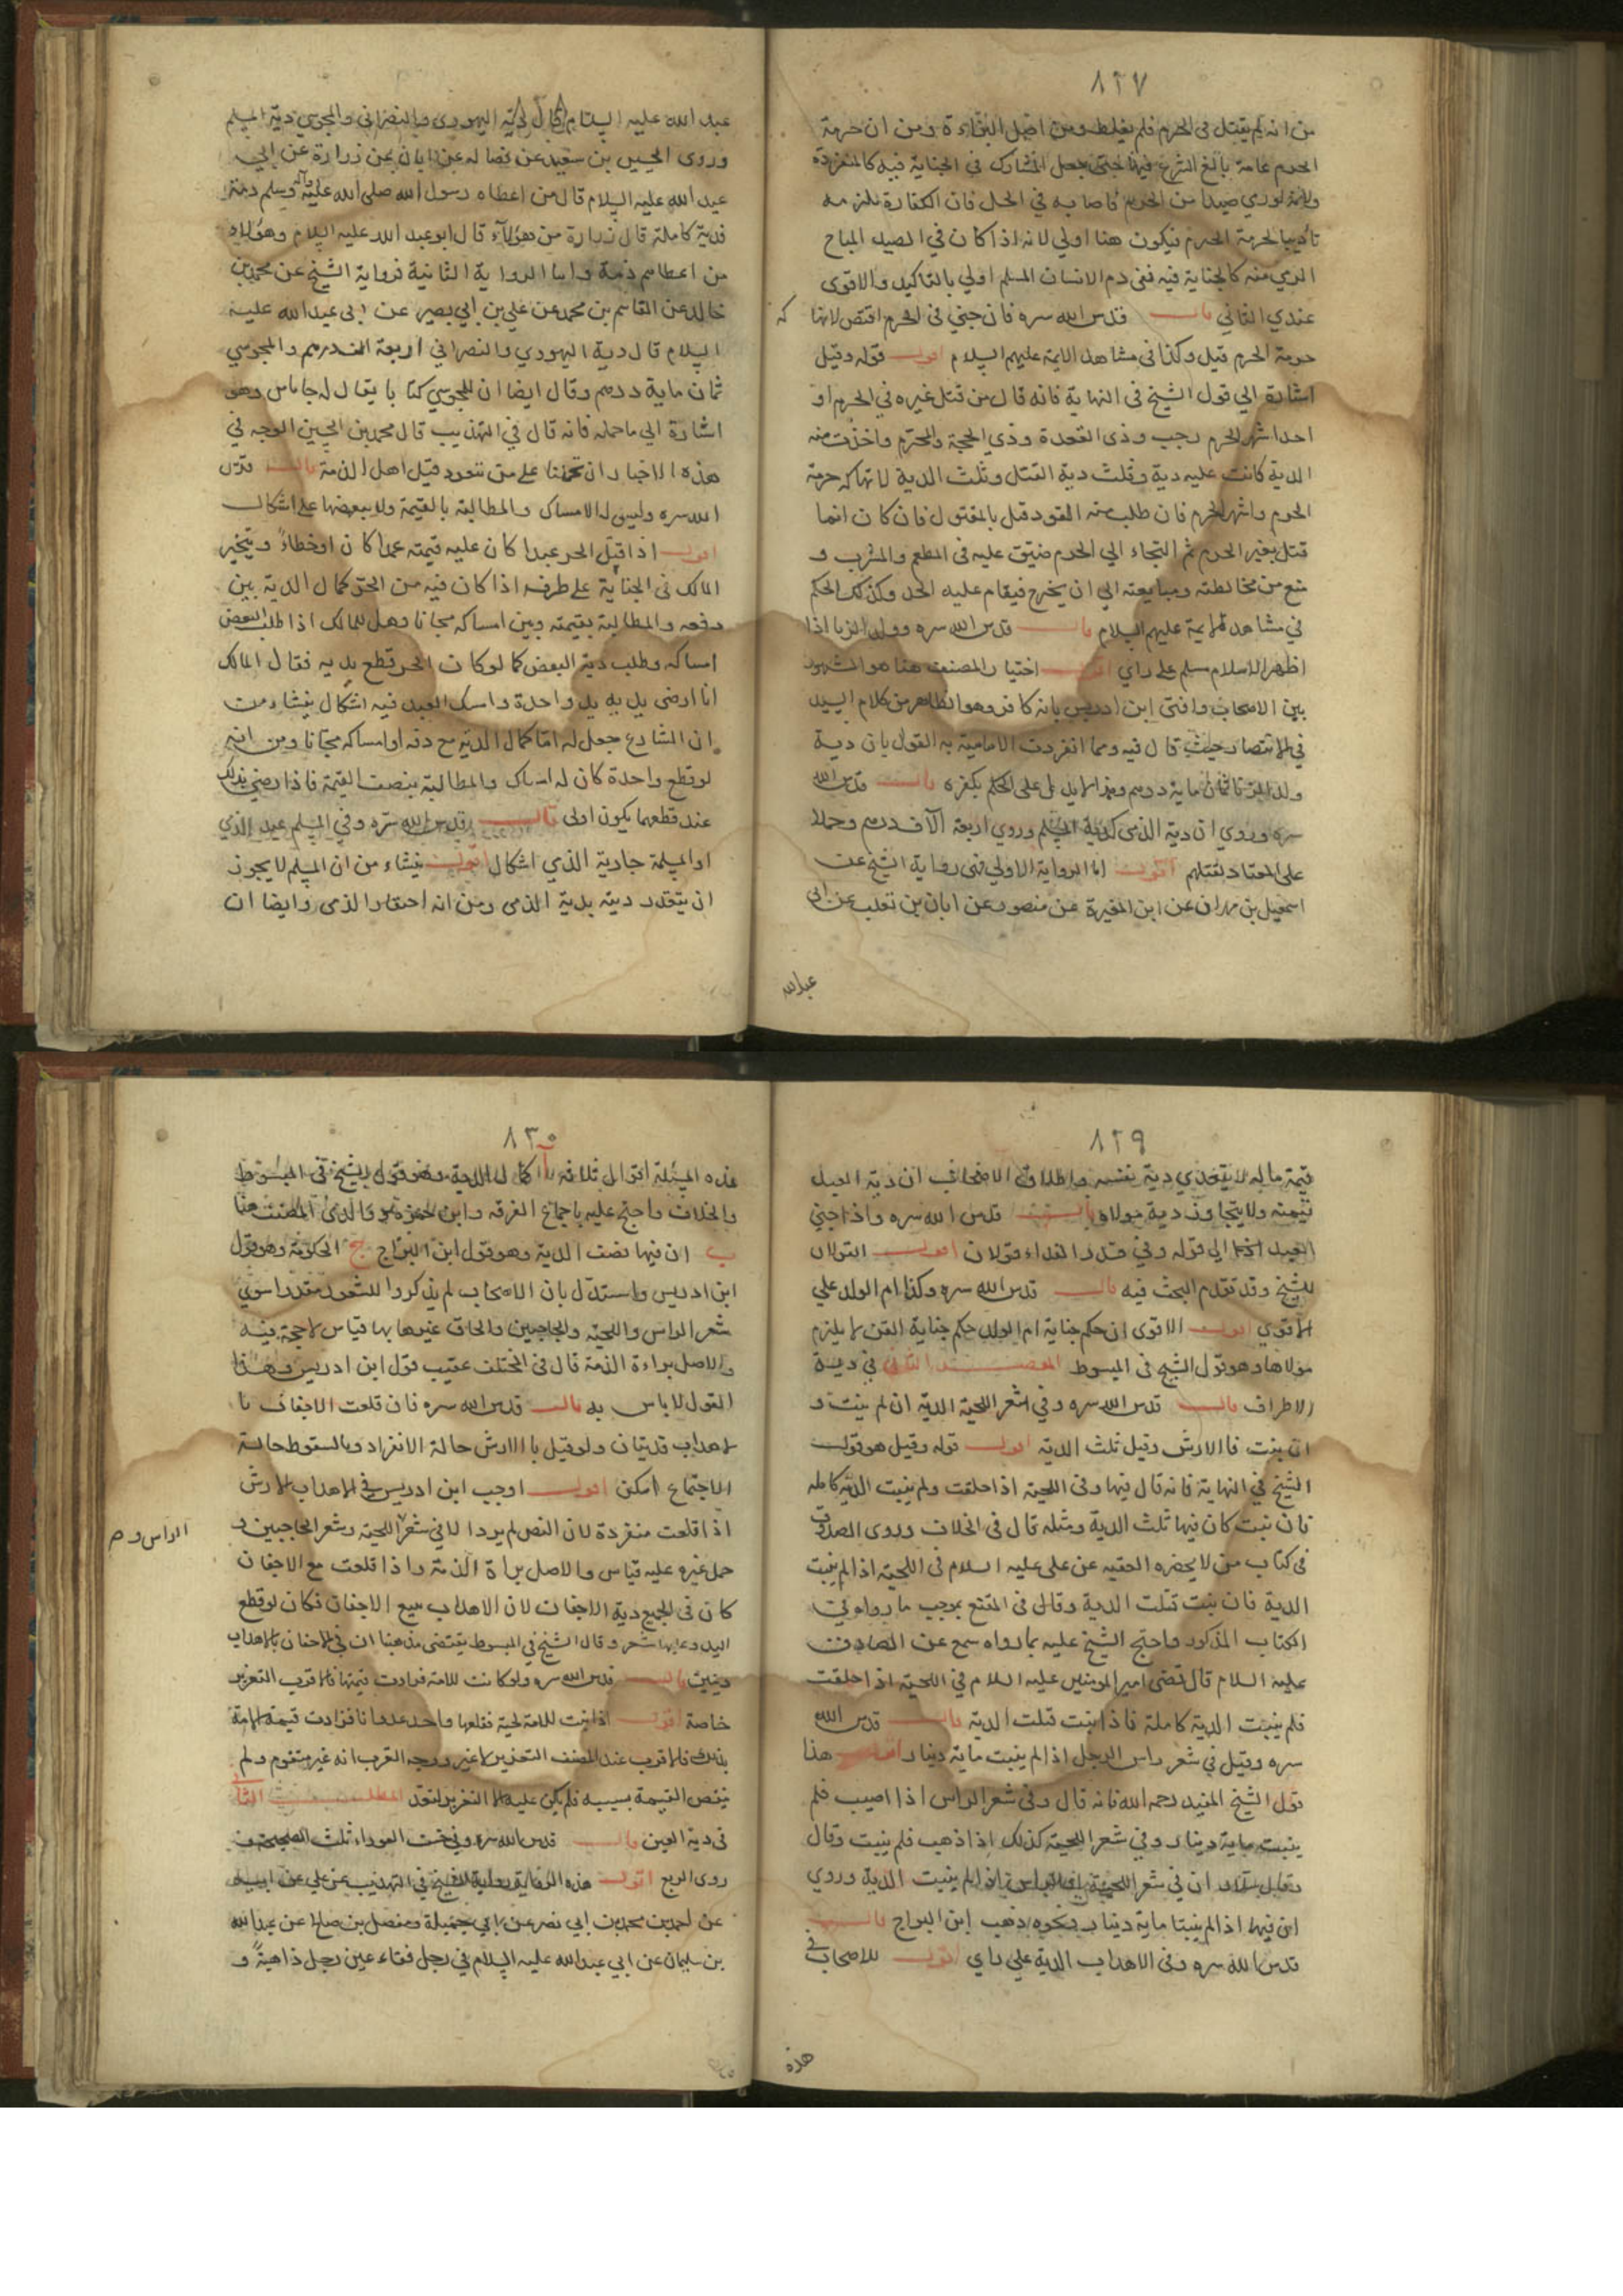 ٨٢٧
من انه لم يقتل في الحرم فلم يغلظ ومن اصل البراءة ومن ان حرمة
الحرم عامة بالغ الشرع فيها حتى جعل المشارك في الجناية فيه كالمنفرد
ولانه لو رمي صيدا من الحرم فاصابه في الحل فان الكفارة تلزمه
تاديبا لحرمة الحرم فيكون هنا اولي لانه اذا كان في الصيد المباح
الرمي منه كالجناية فيه ففي دم الانسان المسلم اولي بالتاكيد والاقوى
عندي الثاني قال قدس الله سره فان جني في الحرم اقتص لانتها كه
حرمة الحرم قيل وكذا في مشاهد الايمة عليهم السلام اقول قوله وقيل
اشارة الي قول الشيخ في النهاية فانه قال من قتل غيره في الحرم او
احد اشهر الحرم رجب وذي القعدة وذي الحجة والمحرم واخذت منه
الدية كانت عليه دية وثلث دية القتل وثلث الدية لانتهاكه حرمة
الحرم واشهر الحرم فان طلب منه القود قتل بالمقتول فان كان انما
قتل بغير الحرم ثم التجاء الي الحرم ضيق عليه في المطعم والمشرب و
منع من مخالطته ومبايعته الي ان يخرج فيقام عليه الحد وكذلك الحكم
في مشاهد الايمة عليهم السلام قال قدس الله سره وولد الزنا اذا
اظهر الاسلام مسلم على راي اقول اختيار المصنف هنا هو المشهور
بين الاصحاب وافتى ابن ادريس بانه كافر وهو الظاهر من كلام السيد
في الانتصار حيث قال فيه ومما انفردت الامامية به القول بان دية
ولد الزنا ثمان ماية درهم وهذا يدل على الحكم بكفره قال قدس الله
سره وروي ان دية الذمي كدية المسلم وروي اربعة آلاف درهم وحملا
على المعتاد لقتلهم اقول اما الرواية الاولي فهي رواية الشيخ عن
اسمعيل بن مهران عن ابن المغيرة عن منصور عن ابان بن تغلب عن ابي
عبدالله
عبد الله عليه السلام قال دية اليهودي والنصراني والمجوسي دية المسلم
وروى الحسين بن سعيد عن فضالة عن ابان عن زرارة عن ابي
عبد الله عليه السلام قال من اعطاه رسول الله صلى الله عليه وآله وسلم ذمة
فدية كاملة قال زرارة من هؤلآء قال ابو عبد الله عليه السلام وهؤلاء
من اعطاهم ذمة واما الرواية الثانية فرواية الشيخ عن محمد بن
خالد عن القاسم بن محمد عن علي بن ابي بصير عن ابى عبد الله عليه
السلام قال دية اليهودي والنصراني اربعة الف درهم والمجوسي
ثمان ماية درهم وقال ايضا ان للمجوسي كتابا يقال له جاماس وهو
اشارة الي ما حمله فانه قال في التهذيب قال محمد بن الحسن الوجه في
هذه الاخبار ان نحملها على من تعود قتل اهل الذمة قال قدس
الله سره وليس له الامساك والمطالبة بالقيمة ولا ببعضها على اشكال
اقول اذا قتل الحر عبدا كان عليه قيمته عمدا كان او خطاءً ويتخير
المالك في الجناية على طرفه اذا كان فيه من الحر كمال الدية بين
دفعه والمطالبة بقيمته وبين امساكه مجانا وهل للمالك اذا طلب البعض
امساكه وطلب دية البعض كما لو كان الحر قطع يديه فقال المالك
انا ارضى بدية يد واحدة وامسك العبد فيه اشكال ينشاء من
ان الشارع جعل له اما كمال الدية مع دفعه او امساكه مجانا ومن انه
لو قطع واحدة كان له امساك والمطالبة بنصف القيمة فاذا رضي بذلك
عند قطعهما يكون اولى قال قدس الله سره وفي المسلم عبد الذمي
او المسلمة جارية الذمي اشكال اقول ينشاء من ان المسلم لا يجوز
ان يتقدر ديته بدية الذمي ومن انه احتقار الذمى وايضا ان
٨٢٩
قيمة ماله لا يتعدي دية نفسه واطلاق الاصحاب ان دية العبد
قيمته ولا يتجاوز دية مولاه قال قدس الله سره واذا جني
العبد الي قوله وفي قدر الفداء قولان اقول القولان
للشيخ وقد تقدم البحث فيه قال قدس الله سره وكذا ام الولد علي
الاقوي اقول الاقوى ان حكم جناية ام الولد حكم جناية القن لا يلزم
مولاها وهو قول الشيخ في المبسوط المقصد الثاني في دية
الاطراف قال قدس الله سره وفي شعر اللحية الدية ان لم ينبت و
ان ينبت فالارش وقيل ثلث الدية اقول قوله وقيل هو قول
الشيخ في النهاية فانه قال فيها وفي اللحية اذا حلقت ولم ينبت الدية كاملة
فان نبت كان فيها ثلث الدية ومثله قال في الخلاف وروى الصدوق
في كتاب من لا يحضره الفقيه عن علي عليه السلام في اللحية اذا لم ينبت
الدية فان نبتت ثلث الدية وقال في المقنع بموجب ما رواه في
الكتاب المذكور واحتج الشيخ عليه بما رواه سمع عن الصادق
عليه السلام قال قضى امير المومنين عليه السلام في اللحية اذا حلقت
فلم ينبت الدية كاملة فاذا نبتت ثلث الدية قال قدس الله
سره وقيل في شعر راس الرجل اذا لم ينبت ماية دينار اقول هذا
قول الشيخ المفيد رحمه الله فانه قال وفي شعر الراس اذا اصيب فلم
ينبت ماية دينار وفي شعر اللحية كذلك اذا ذهب فلم ينبت وقال
ان في شعر اللحية اذا لم ينبت الدية وروي
ان فيها اذا لم ينبتا ماية دينار وبنحوه ذهب ابن البراج قال
قدس الله سره وفي الاهداب الدية علي راي اقول للاصحاب في
هذه
٨٣٠
هذه المسئلة اقوال ثلاثة آ كمال الدية وهو قول الشيخ في المبسوط
والخلاف واحتج عليه باجماع الفرقه وابن حمزه ووالدى المصنف هنا
ب ان فيها نصف الدية وهو قول ابن البراج ج الحكومة وهو قول
ابن ادريس واستدل بان الاصحاب لم يذكروا للشعور مقدرا سوي
شعر الراس واللحية والحاجبين والحاق غيرها بها قياس لا حجة فيه
والاصل براءة الذمة قال في المختلف عقيب قول ابن ادريس وهذا
القول لا باس به قال قدس الله سره فان قلعت الاجفان با
لاهداب فديتان ولو قيل بالارش حالة الانفراد وبالسقوط حالة
الاجتماع امكن اقول اوجب ابن ادريس في الاهداب الارش
اذا قلعت منفردة لان النص لم يرد الا في شعر اللحية وشعر الحاجبين و
الراس و صح
حمل غيره عليه قياس والاصل براة الذمة واذا قلعت مع الاجفان
كان في الجميع دية الاجفان لان الاهداب تبع الاجفان فكان لو قطع
اليد وعليها شعر وقال الشيخ في المبسوط يقتضى مذهبنا ان في الاجفان بالاهداب
ديتين قال قدس الله سره ولو كانت للامة فزادت قيمتها فالاقرب التعزير
خاصة اقول اذا نبت للامة لحية فقلعها واحد عدوانا فزادت قيمة الامة
بذلك فالاقرب عند المصنف التعزير لا غير ووجه القرب انه غير متقوم ولم
ينقص القيمة بسببه فلم يكن عليه الا التعزير المطلب الثاني
في دية العين قال قدس الله سره وفي خسف العوراء ثلث الصحيحة و
روى الربع اقول هذه الرواية رواية الشيخ في التهذيب
عن احمد بن محمد بن ابي نصر عن ابي جميلة ومفضل بن صالح عن عبد الله
بن سليمان عن ابي عبد الله عليه السلام في رجل فقاء عين رجل ذاهبةً و